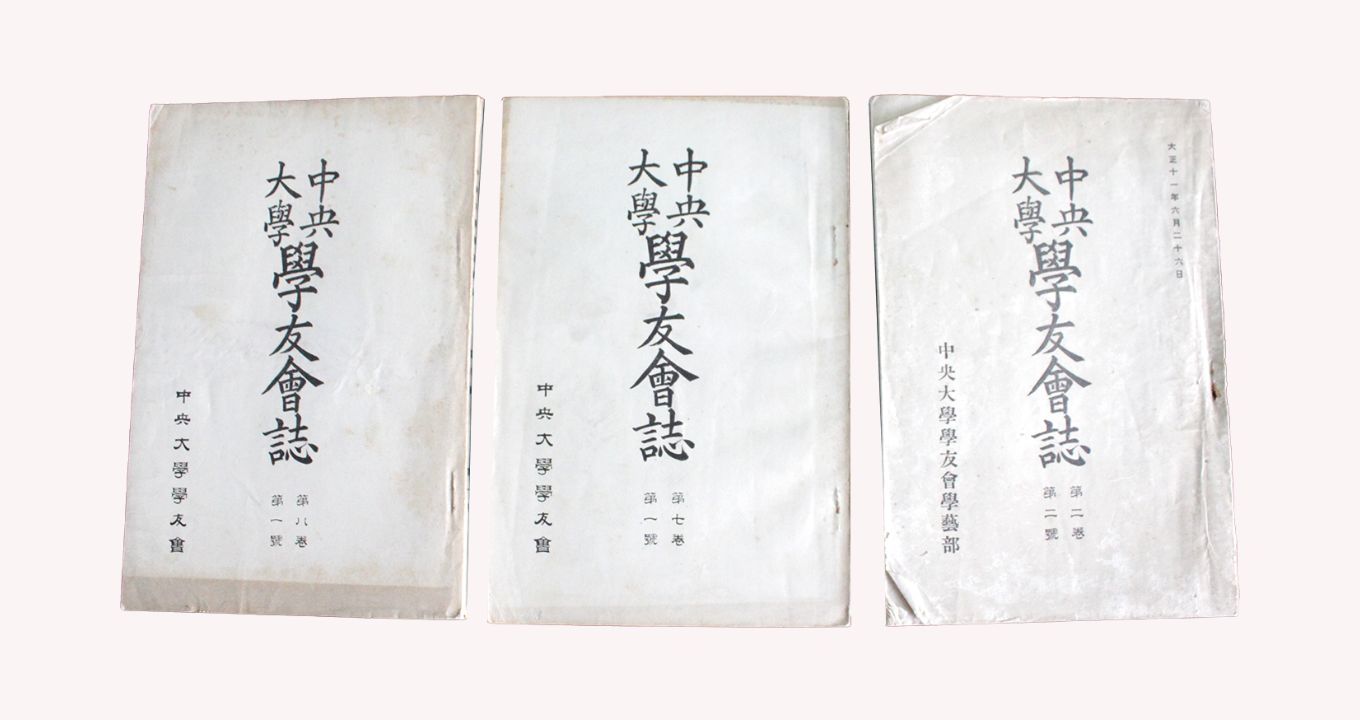 中央
大學
學友會誌
第八卷
第一號
中央大學學友會
中央
大學
學友會誌
第七卷
第一號
中央大學學友會
大正十一年六月二十六日
中央
大學
學友會誌
第二卷
第二號
中央大學學友會學藝部